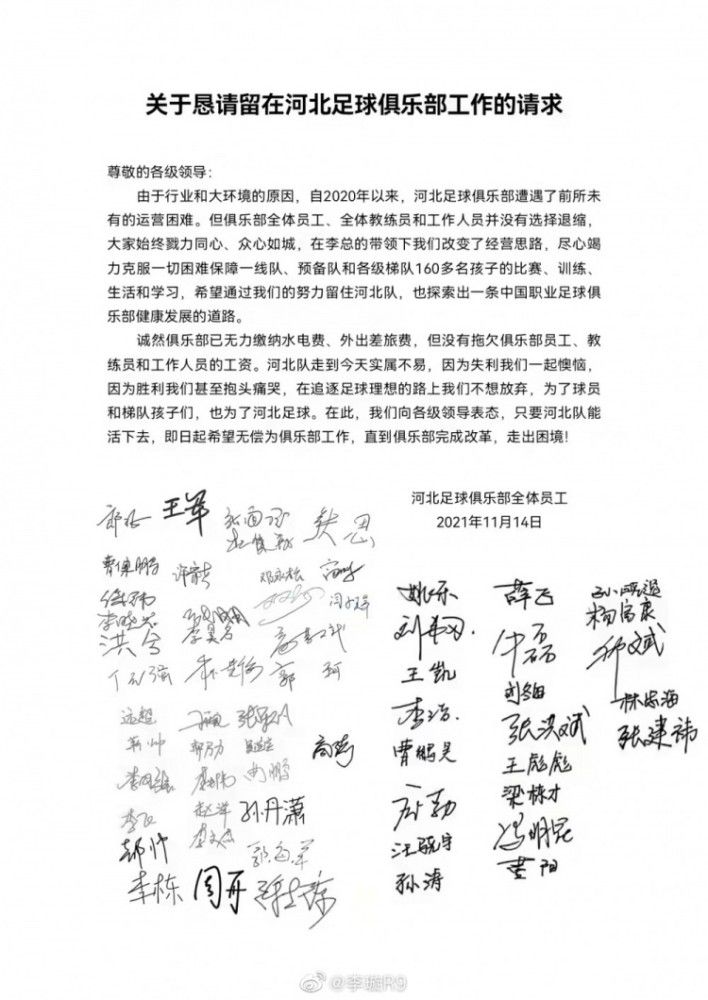 关于恳请留在河北足球俱乐部工作的请求
尊敬的各级领导:
由于行业和大环境的原因，自2020年以来，河北足球俱乐部遭遇了前所未
有的运营困难。但俱乐部全体员工、全体教练员和工作人员并没有选择退缩，
大家始终戮力同心、众心如城，在李总的带领下我们改变了经营思路，尽心竭
力克服一切困难保障一线队、预备队和各级梯队160多名孩子的比赛、训练、
生活和学习，希望通过我们的努力留住河北队，也探索出一条中国职业足球俱
乐部健康发展的道路。
诚然俱乐部已无力缴纳水电费、外出差旅费，但没有拖欠俱乐部员工、教
练员和工作人员的工资。河北队走到今天实属不易，因为失利我们一起懊恼，
因为胜利我们甚至抱头痛哭，在追逐足球理想的路上我们不想放弃，为了球员
和梯队孩子们，也为了河北足球。在此，我们向各级领导表态，只要河北队能
活下去，即日起希望无偿为俱乐部工作，直到俱乐部完成改革，走出困境!
河北足球俱乐部全体员工
2021年11月14日
王军
曹保鹏
洪兮
郭珂
姚乐 薛飞
王凯
刘翔
李浩 张洪斌
曹鹏昊 王彪彪
梁栋才
汪骁宇 冯明昆
孙涛 黄阳
杨富康
林志海
张建祎
远超
高浩
赵洋 孙丹潇
郝帅 郭
李栋 周开
@李璇R9